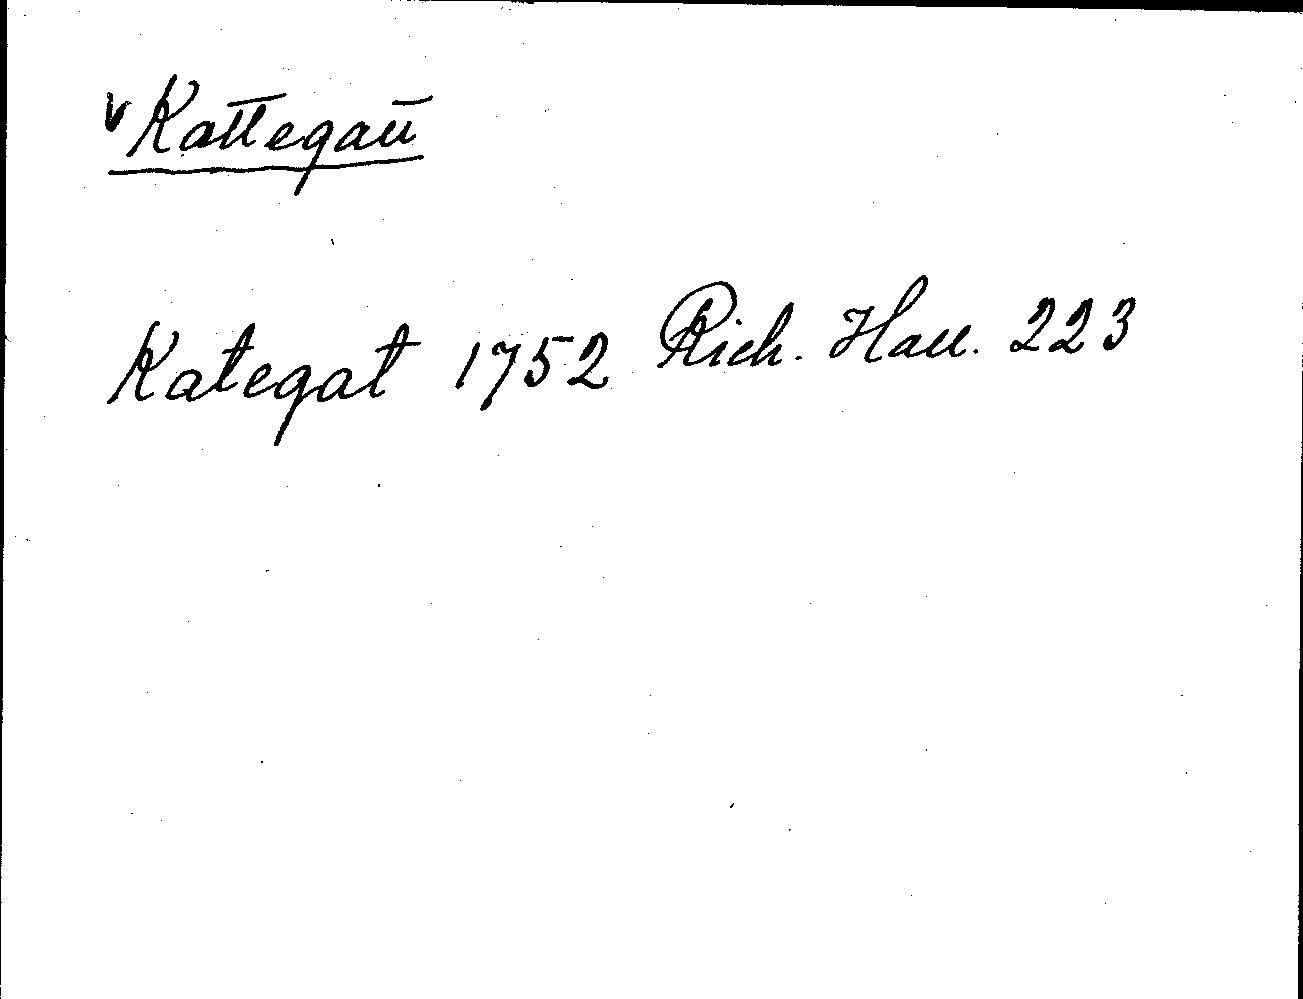 v Kattegatt
Kategat 1752 Rich. Hau. 223